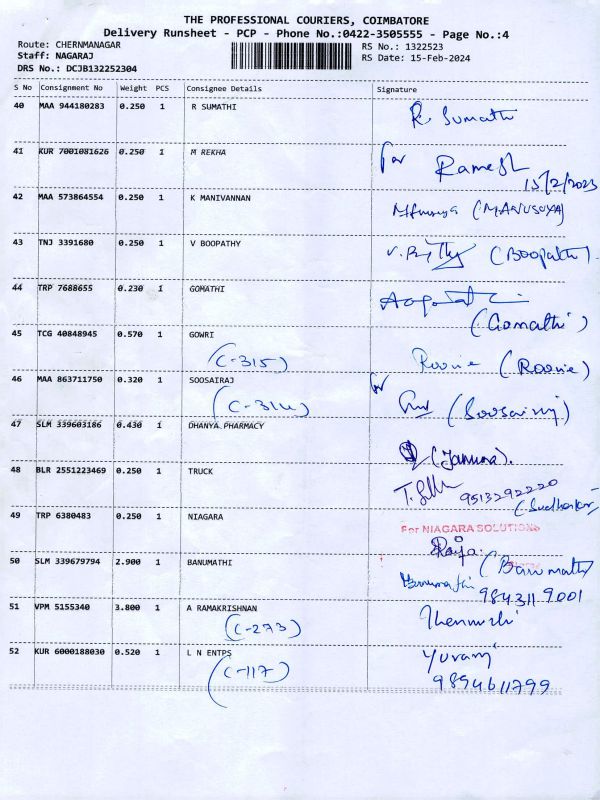 THE PROFESSIONAL COURIERS, COIMBATORE
Delivery Runsheet - PCP - Phone No.:0422-3505555 - Page No.:4
Route: CHERNMANAGAR
RS No.: 1322523
Staff: NAGARAJ
RS Date: 15-Feb-2024
DRS No.: DCJB132252304
S No Consignment No Weight PCS Consignee Details Signature
40 MAA 944180283 0.250 1 R SUMATHI R. Sumathi
41 KUR 7001081626 0.250 1 M REKHA for Ramesh
15/2/2023
42 MAA 573864554 0.250 1 K MANIVANNAN (MANUSUYA)
43 TNJ 3391680 0.250 1 V BOOPATHY (Boopathi).
44 TRP 7688655 0.230 1 GOMATHI
(Gomathi)
45 TCG 40848945 0.570 1 GOWRI Roonie (Roonie)
(C-315)
46 MAA 863711750 0.320 1 SOOSAIRAJ for (Soosairaj)
(C-314)
47 SLM 339603186 0.430 1 DHANYA PHARMACY
(Jamuna).
48 BLR 2551223469 0.250 1 TRUCK 9513292220
(Sudhakar)
49 TRP 6380483 0.250 1 NIAGARA
For NIAGARA SOLUTIONS
Raja
50 SLM 339679794 2.900 1 BANUMATHI (Banumathi)
9843119001
51 VPM 5155340 3.800 1 A RAMAKRISHNAN
(C-273)
52 KUR 6000188030 0.520 1 L N ENTPS Yuvaraj
(C-117)
9894611799